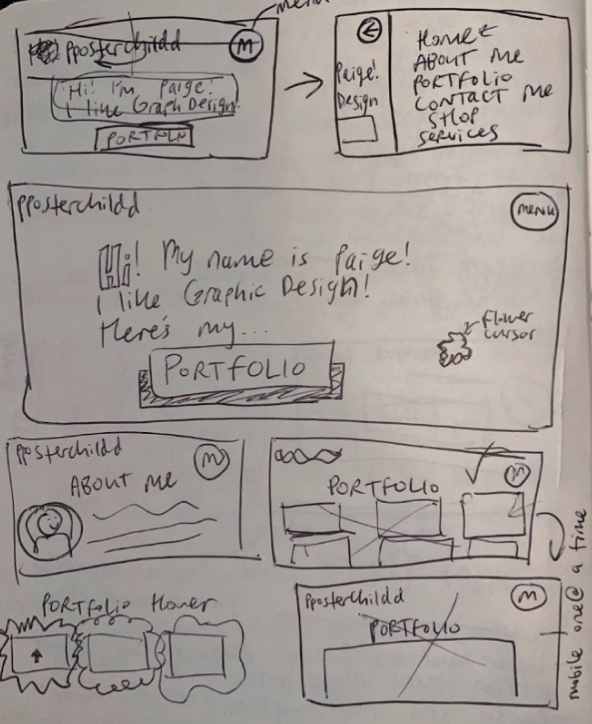 menu
pposterchildd
M
Hi! I'm Paige!
I like Graph Design!
PORTFOLIO
Home
ABOUT me
PORTFOLIO
CONTACT me
SHOP
Services
Paige!
Design
pposterchildd
menu
Hi! My name is Paige!
i like Graphic Design!
Here's my...
PORTFOLIO
flower
cursor
pposterchildd
M
ABOUT me
M
PORTFOLIO
mobile one@ a time
PORTFOLIO Hover
pposterchildd
M
PORTFOLIO